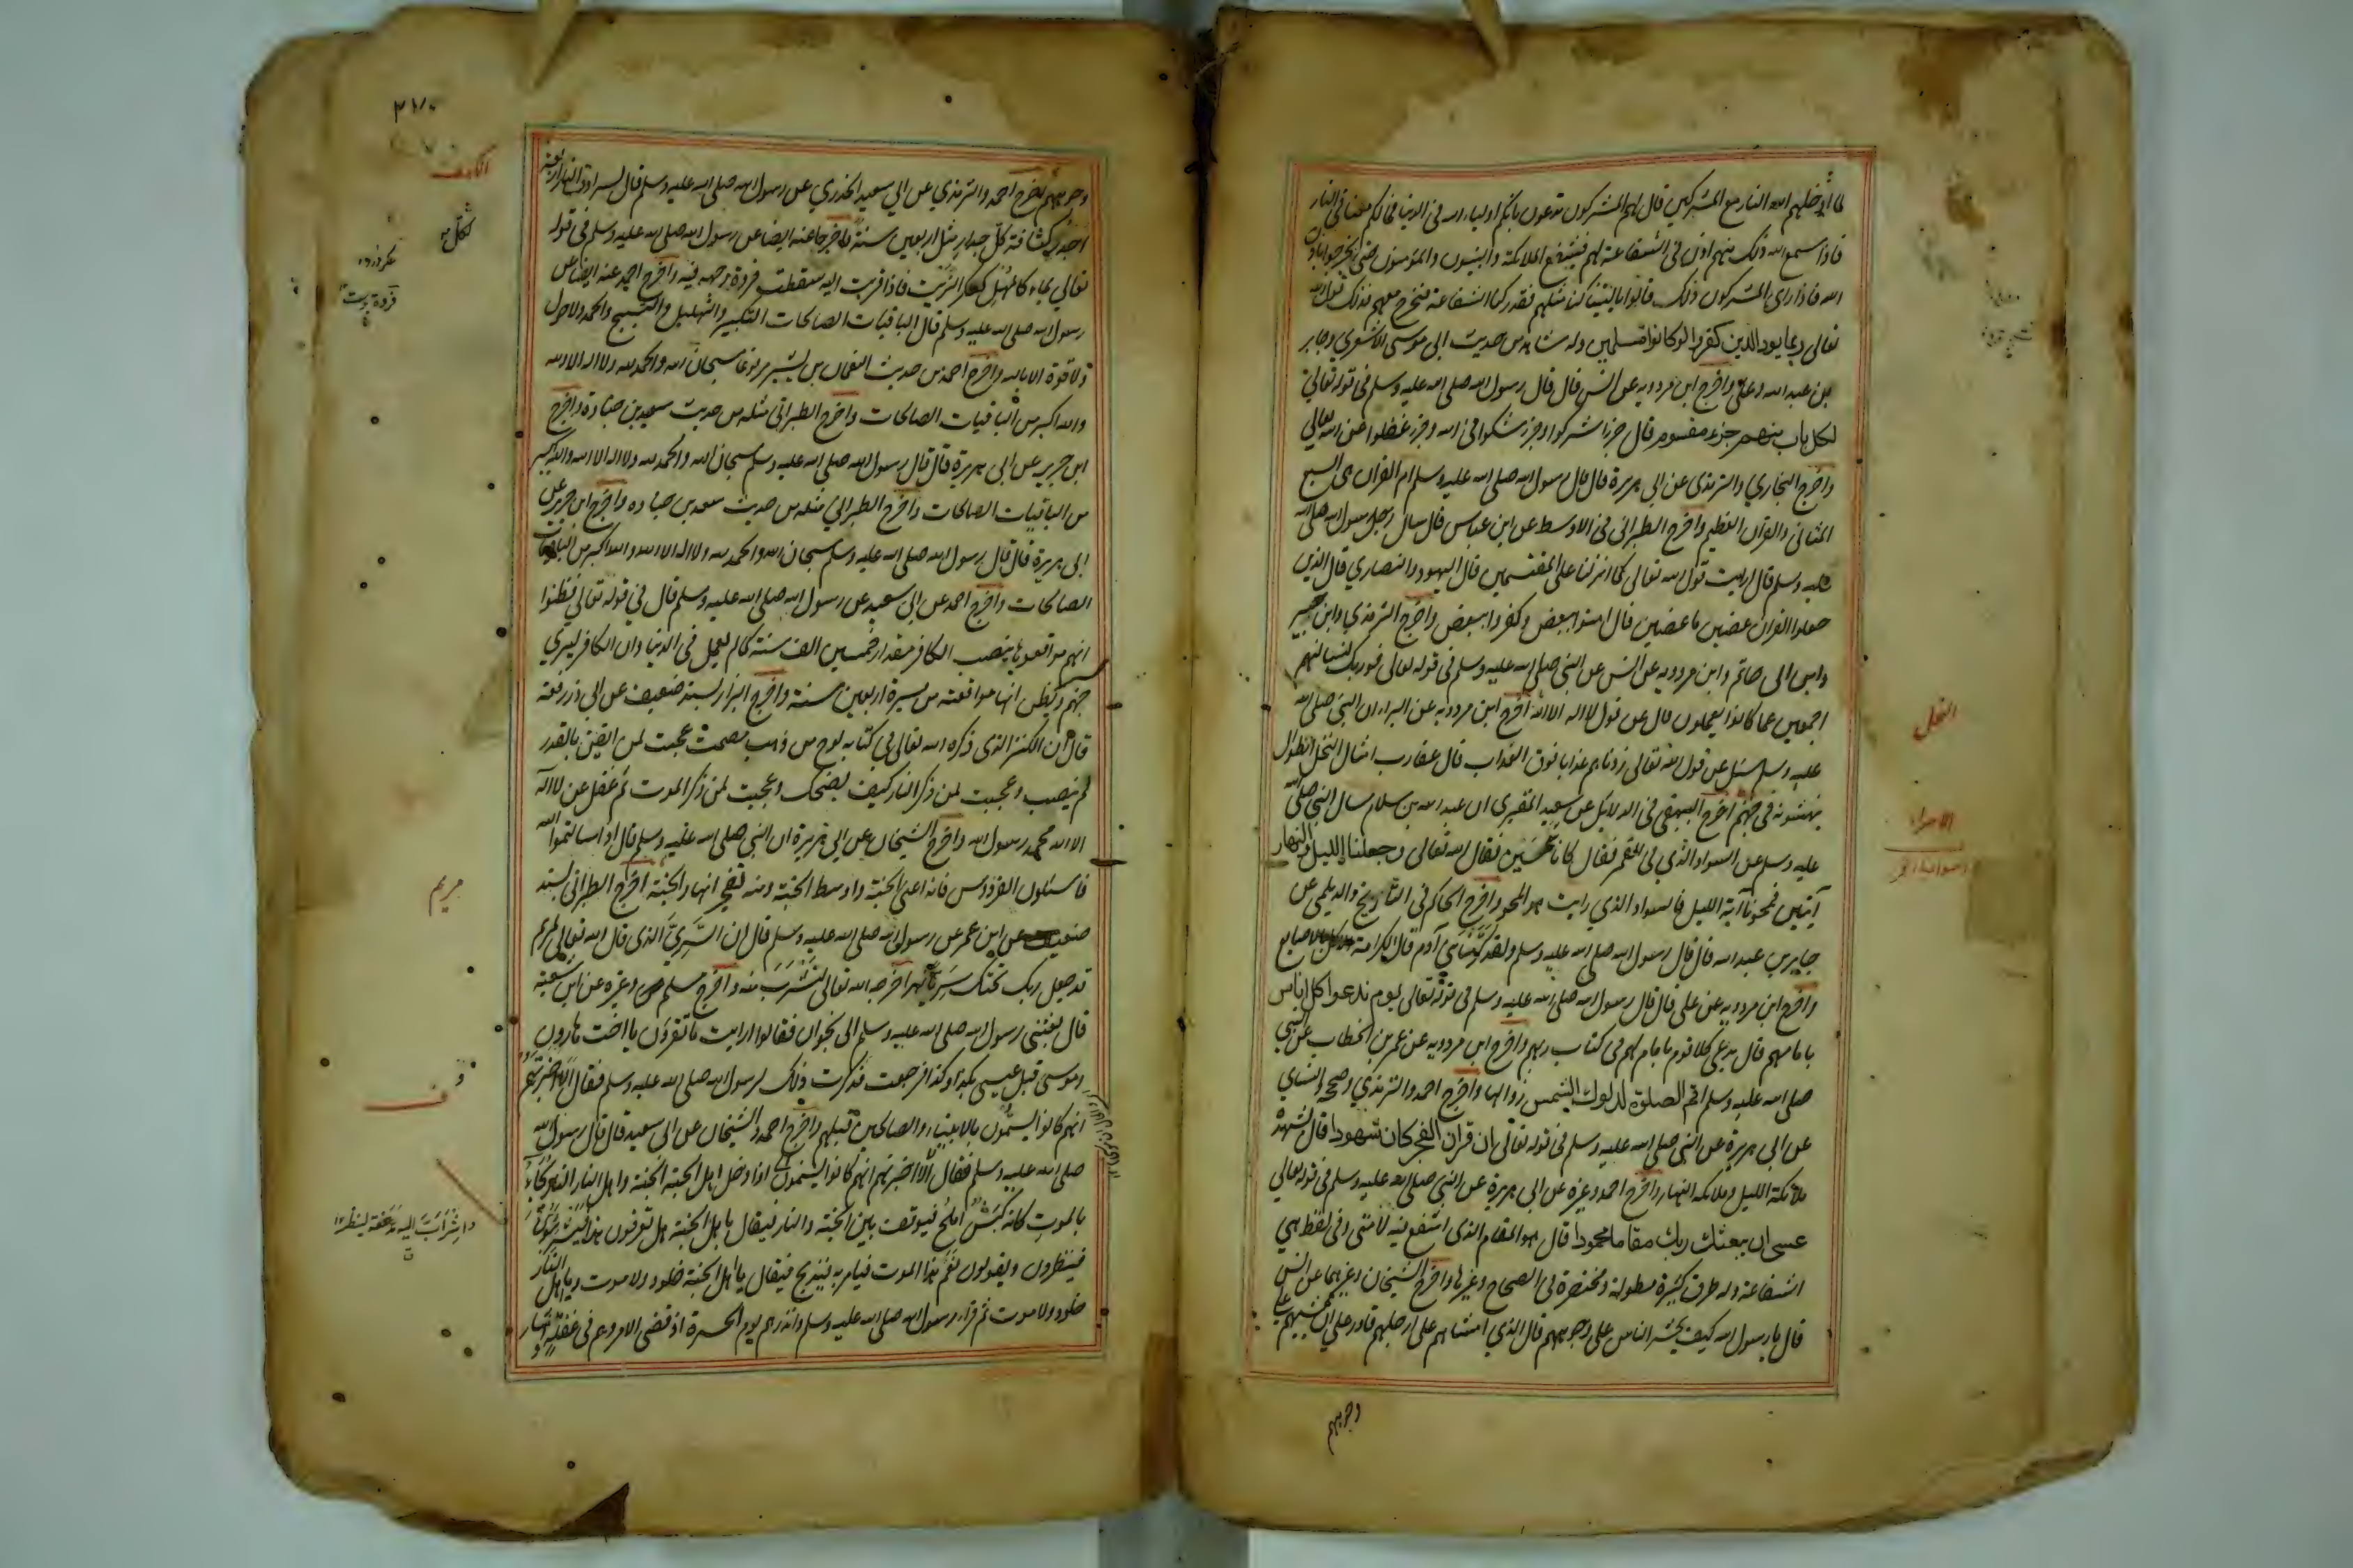 لما ادخلهم الله النار مع المشركين قال لهم المشركون تدعون بانكم اولياء الله في الدنيا فما لكم معنا في النار
فاذا سمع الله ذلك منهم اذن في الشفاعة لهم فيشفع الملائكة والنبيون والمؤمنون حتى يخرجوا باذن
الله فاذا راى المشركون ذلك قالوا يا ليتنا كنا مثلهم فتدركنا الشفاعة فنخرج معهم فذلك قول الله
تعالى ربما يود الذين كفروا لو كانوا مسلمين وله شاهد من حديث ابى موسى الاشعري وجابر
بن عبد الله وعلي واخرج ابن مردويه عن انس قال قال رسول الله صلى الله عليه وسلم في قوله تعالى
لكل باب منهم جزء مقسوم قال جزء اشركوا وجزء شكوا في الله وجزء غفلوا عن الله تعالى
واخرج البخاري والترمذى عن ابى هريرة قال قال رسول الله صلى الله عليه وسلم ام القران هى السبع
المثانى والقران العظيم واخرج الطبرانى في الاوسط عن ابن عباس قال سال رجل رسول الله صلى الله
عليه وسلم قال ارايت قول الله تعالى كما انزلنا على المقتسمين قال اليهود والنصاري قال الذين
جعلوا القران عضين ما عضين قال امنوا ببعض وكفروا ببعض واخرج الترمذي وابن جرير
وابن ابى حاتم وابن مردويه عن انس عن النبي صلى الله عليه وسلم في قوله تعالى فوربك لنسألنهم
اجمعين عما كانوا يعملون قال عن قول لا اله الا الله اخرج ابن مردويه عن البراء ان النبي صلى الله
عليه وسلم سئل عن قول الله تعالى زدناهم عذابا فوق العذاب قال عقارب امثال النخل الطوال
ينهشونه في جهنم اخرج البيهقي في الدلايل عن سعيد المقبري ان عبد الله بن سلام سال النبي صلى الله
عليه وسلم عن السواد الذي في القمر فقال كانا شمسين فقال الله تعالى وجعلنا الليل والنهار
آيتين فمحونا آية الليل فالسواد الذي رايت هو المحو واخرج الحاكم في التاريخ والديلمى عن
جابر بن عبد الله قال قال رسول الله صلى الله عليه وسلم ولقد كرمنا بنى آدم قال الكرامة الاكل بالاصابع
واخرج ابن مردويه عن على قال قال رسول الله صلى الله عليه وسلم في قوله تعالى يوم ندعوا كل اناس
بامامهم قال يدعى كل قوم بامام لهم في كتاب ربهم واخرج ابن مردويه عن عمر بن الخطاب عن النبي
صلى الله عليه وسلم اقم الصلوة لدلوك الشمس زوالها واخرج احمد والترمذي وصححه والنساي
عن ابى هريرة عن النبي صلى الله عليه وسلم في قوله تعالى ان قران الفجر كان مشهودا قال تشهده
ملائكة الليل وملائكة النهار واخرج احمد وغيره عن ابى هريرة عن النبي صلى الله عليه وسلم في قوله تعالى
عسى ان يبعثك ربك مقاما محمودا قال هو المقام الذي اشفع فيه لامتى وفى لفظ هي
الشفاعة وله طرق كثيرة مطولة ومختصرة في الصحاح وغيرها واخرج الشيخان وغيرهما عن انس
قال يا رسول الله كيف يحشر الناس على وجوههم قال الذي امشاهم على ارجلهم قادر على ان يمشيهم على
وجوههم
النحل
الاسراء
الكهف
مريم
وجوههم اخرج احمد والترمذي عن ابي سعيد الخدري عن رسول الله صلى الله عليه وسلم قال لسرادق النار اربعة
جدر كثافة كل جدار مثل اربعين سنة واخرجا عنه ايضا عن رسول الله صلى الله عليه وسلم في قوله
تعالى بماء كالمهل كعكر الزيت فاذا قربت اليه سقطت فروة وجهه فيه واخرج احمد عنه ايضا عن
رسول الله صلى الله عليه وسلم قال الباقيات الصالحات التكبير والتهليل والتسبيح والحمد ولا حول
ولا قوة الا بالله واخرج احمد من حديث النعمان بن بشير مرفوعا سبحان الله والحمد لله ولا اله الا الله
والله اكبر من الباقيات الصالحات واخرج الطبرانى مثله من حديث سعد بن جنادة واخرج
ابن جرير عن ابى هريرة قال قال رسول الله صلى الله عليه وسلم سبحان الله والحمد لله ولا اله الا الله والله اكبر
من الباقيات الصالحات واخرج الطبراني مثله من حديث سعد بن جناده واخرج ابن جرير عن
ابى هريرة قال قال رسول الله صلى الله عليه وسلم سبحان الله والحمد لله ولا اله الا الله والله اكبر من الباقيات
الصالحات واخرج احمد عن ابى سعيد عن رسول الله صلى الله عليه وسلم قال في قوله تعالى فظنوا
انهم مواقعوها ينصب الكافر مقدار خمسين الف سنة كما لم يعمل في الدنيا وان الكافر ليري
جهنم ويظن انها مواقعته من مسيرة اربعين سنة واخرج البزار بسند ضعيف عن ابى ذر رفعه
قال ان الكنز الذي ذكره الله تعالى في كتابه لوح من ذهب مصمت عجبت لمن ايقن بالقدر
لم نصب وعجبت لمن ذكر النار كيف يضحك وعجبت لمن ذكر الموت ثم غفل عن لا اله
الا الله محمد رسول الله واخرج الشيخان عن ابى هريرة ان النبي صلى الله عليه وسلم قال اذا سالتموا الله
فاسئلوه الفردوس فانه اعلى الجنة واوسط الجنة ومنه تفجر انهار الجنة اخرج الطبرانى بسند
ضعيف عن ابن عمر عن رسول الله صلى الله عليه وسلم قال ان السَّرِيَّ الذى قال الله تعالى لمريم
قد جعل ربك تحتك سريا نهر اخرجه الله تعالى لتشرب منه واخرج مسلم وغيره عن ابن شعبة
قال بعثنى رسول الله صلى الله عليه وسلم الى نجران فقالوا ارايت ما تقرؤن يا اخت هارون
وموسى قبل عيسى بكذا وكذا فرجعت فذكرت ذلك لرسول الله صلى الله عليه وسلم فقال الا اخبرتهم
انهم كانوا يسمون بالانبياء والصالحين قبلهم واخرج احمد والشيخان عن ابى سعيد قال قال رسول الله
صلى الله عليه وسلم فقال الا اخبرتهم انهم كانوا يسمون اذا دخل اهل الجنة الجنة واهل النار النار يجاء
بالموت كانه كبش املح فيوقف بين الجنة والنار فيقال يا اهل الجنة هل تعرفون هذا فيشرئبون
فينظرون ويقولون نعم هذا الموت فيامر به فيذبح فيقال يا اهل الجنة خلود ولا موت ويا اهل النار
خلود ولا موت ثم قراء رسول الله صلى الله عليه وسلم وانذرهم يوم الحسرة اذ قضى الامر وهم في غفلة واشار